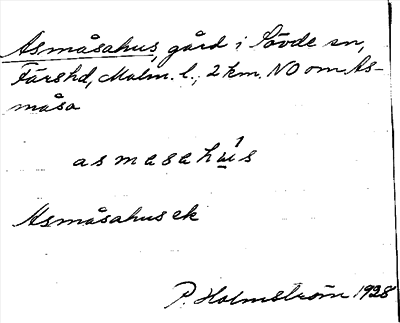 Asmåsahus, gård i Sövde sn,
Färs hd, Malm. l.; 2 km. NO om As-
måsa
asmasahu̲s
Asmåsahus ek
P. Holmström 1928